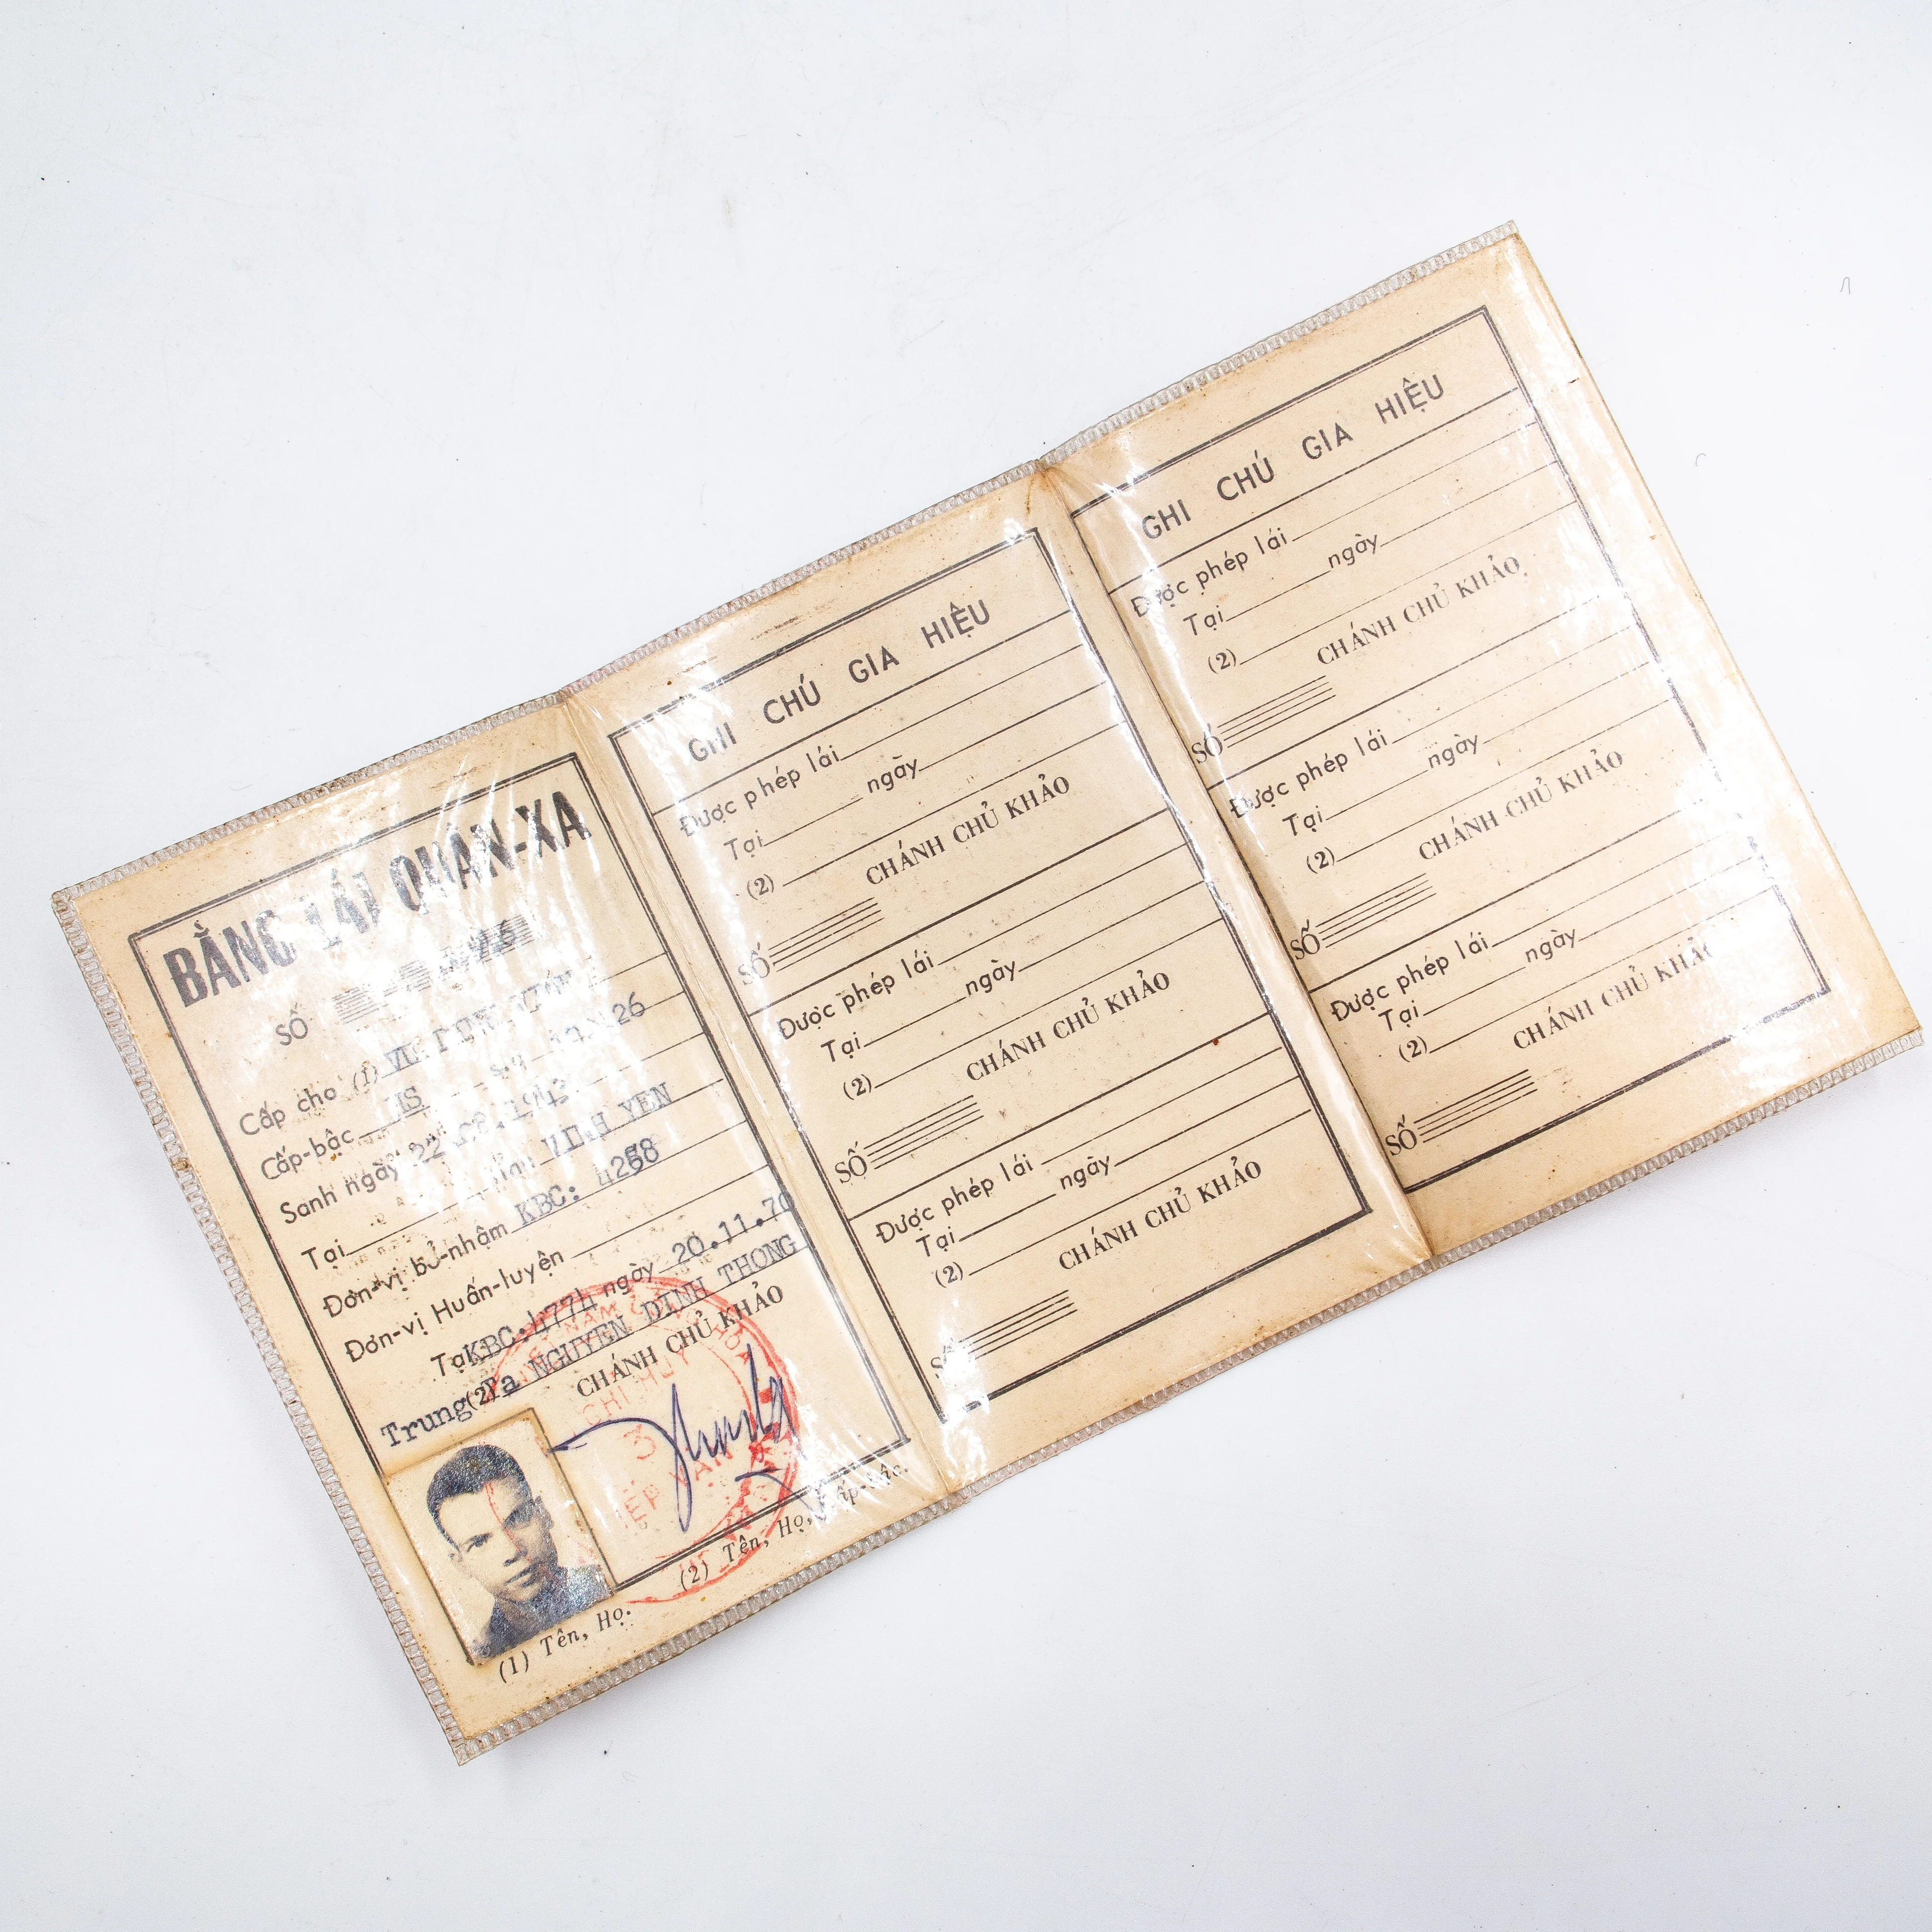 BẰNG LÁI QUÂN-XA
SỐ
Cấp cho (1)
Cấp-bậc HS
Sanh ngày 22
Tại VINH YEN
Đơn-vị bổ-nhậm KBC: 4258
Đơn-vị Huấn-luyện
Tại KBC:4774 ngày 20.11.70
Trung (2) Ta NGUYEN DINH THONG
CHÁNH CHỦ KHẢO
(1) Tên, Họ.
(2) Tên, Họ, Cấp-bậc.
GHI CHÚ GIA HIỆU
Được phép lái
Tại ngày
(2)
CHÁNH CHỦ KHẢO
SỐ
Được phép lái
Tại ngày
(2)
CHÁNH CHỦ KHẢO
SỐ
Được phép lái
Tại ngày
(2)
CHÁNH CHỦ KHẢO
SỐ
GHI CHÚ GIA HIỆU
Được phép lái
Tại ngày
(2)
CHÁNH CHỦ KHẢO
SỐ
Được phép lái
Tại ngày
(2)
CHÁNH CHỦ KHẢO
SỐ
Được phép lái
Tại ngày
(2)
CHÁNH CHỦ KHẢO
SỐ